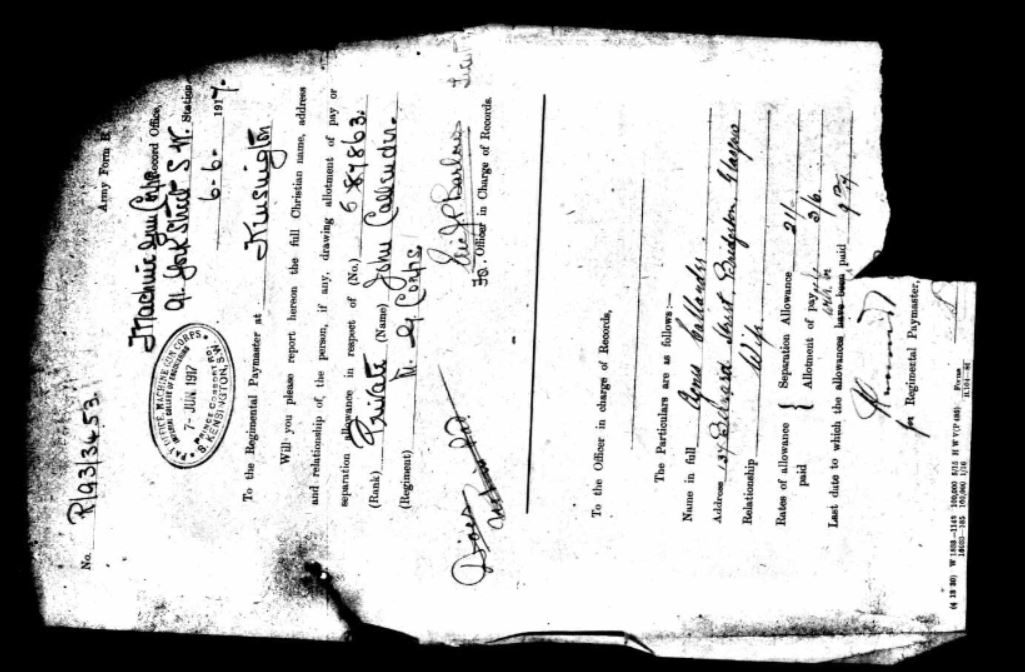 Army Form B
No. R/93/3453.
Machine Gun Corps Record Office,
91. York Street S.W. Station,
6-6- 1917.
PAY OFFICE, MACHINE GUN CORPS.
IMPERIAL COLLEGE OF
7- JUN 1917
PRINCE CONSORT RD.
S. KENSINGTON, S.W.
To the Regimental Paymaster at Kensington
Will you please report hereon the full Christian name, address
and relationship of the person, if any, drawing allotment of pay or
separation allowance in respect of (No.)
(Rank) Private (Name) John Callander.
(Regiment) M. G. Corps.
Barlow Lieut
Officer in Charge of Records.
To the Officer in charge of Records,
The Particulars are as follows:—
Name in full Agnes Callander.
Address 137 Street Bridgeton, Glasgow
Relationship Wife.
Rates of allowance paid { Separation Allowance 21/-
Allotment of pay 3/6.
Last date to which the allowances have been paid
for Regimental Paymaster,
100,000 H W V
Forms